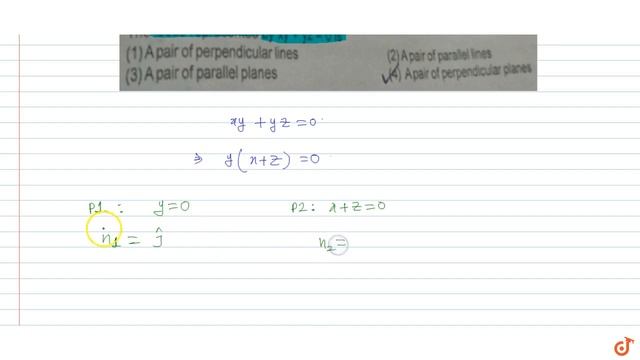 by xy + yz = 0 is
(1) A pair of perpendicular lines
(2) A pair of parallel lines
(3) A pair of parallel planes
(4) A pair of perpendicular planes
xy + yz = 0
⇒ y(x+z) = 0
P1 : y=0
P2 : x+z=0
n₁ = ĵ
n₂ =